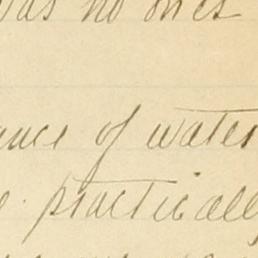 was no ones
ance of water
practically